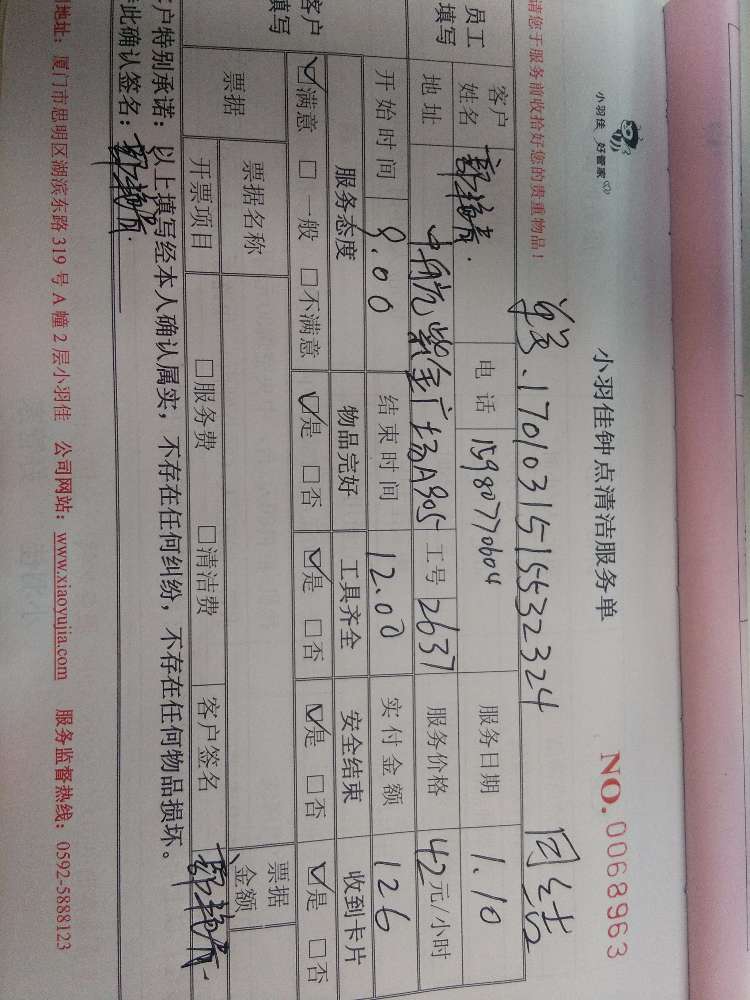 小羽佳 好管家
小羽佳钟点清洁服务单
NO. 0068963
请您于服务前收拾好您的贵重物品！
单号.1701031515532324 周结
员工填写 客户姓名 电话 15980770604 服务日期 1.10
地址 中航紫金广场A905 工号 2637 服务价格 42元/小时
开始时间 9.00 结束时间 12.00 实付金额 126
客户填写 服务态度 物品完好 工具齐全 安全结束 收到卡片
☑满意 □一般 □不满意 ☑是 □否 ☑是 □否 ☑是 □否 ☑是 □否
票据 票据名称 票据金额
开票项目 □服务费 □清洁费 客户签名
客户特别承诺：以上填写经本人确认属实，不存在任何纠纷，不存在任何物品损坏。
此确认签名：
地址：厦门市思明区湖滨东路 319 号 A 幢 2 层小羽佳 公司网站：www.xiaoyujia.com 服务监督热线：0592-5888123